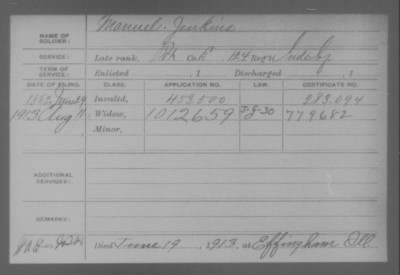 NAME OF SOLDIER: Manuel Jenkins
SERVICE: Late rank, Pvt Co. E, 124 Reg't Ind. Inf
TERM OF SERVICE: Enlisted , 1 Discharged , 1
DATE OF FILING. CLASS. APPLICATION NO. LAW. CERTIFICATE NO.
1883 Invalid, 453.500 283.094
1913 Aug 11 Widow, 1012659 779682
Minor,
ADDITIONAL SERVICES:
REMARKS:
Died June 19, 1913, at Effingham Ill